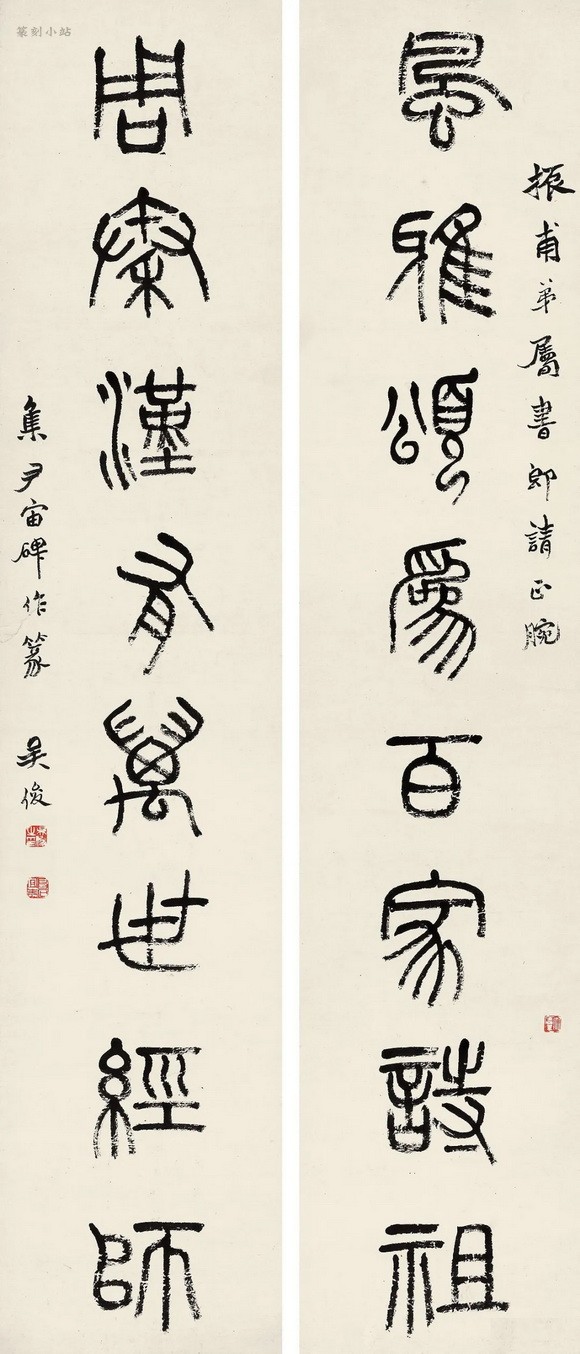 振甫弟屬書即請正腕
風雅頌爲百家詩祖
周秦漢有萬世經師
集尹宙碑作篆 吳俊
篆刻小站